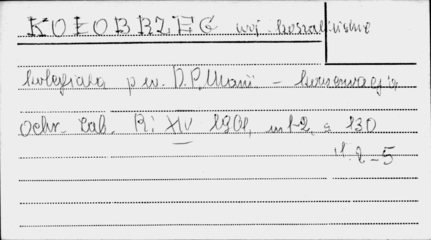 KOŁOBRZEG woj. koszalińskie
kolegiata p.w. N.P. Marii – konserwacja
Ochr. Zab. R. XIV 1961, nr 1-2, s. 130
il. 2-5